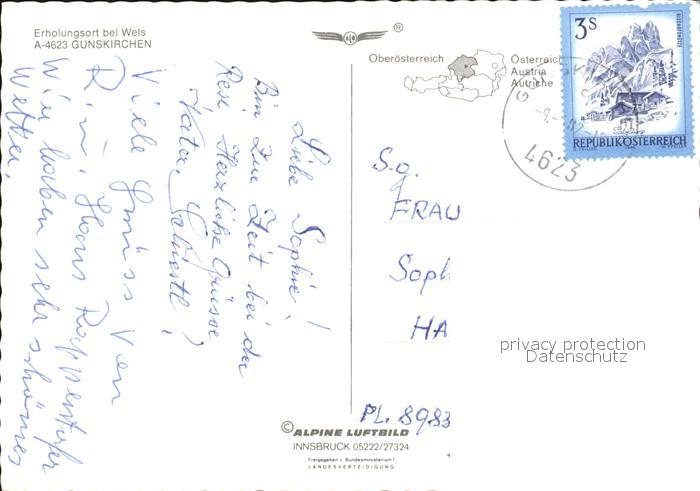 Erholungsort bei Wels
A-4623 GUNSKIRCHEN
®
Oberösterreich
Österreich
Austria
Autriche
3S
REPUBLIK ÖSTERREICH
4623
Liebe Sophie!
Bin zur Zeit bei der
Resi Herzliche Grüsse
Viele Grüss Von
Wir haben sehr schönes
Wetter.
S.g.
FRAU
Soph
HA
PL. 8983
privacy protection
Datenschutz
© ALPINE LUFTBILD
INNSBRUCK 05222/27324
Freigegeben v. Bundesministerium f.
LANDESVERTEIDIGUNG